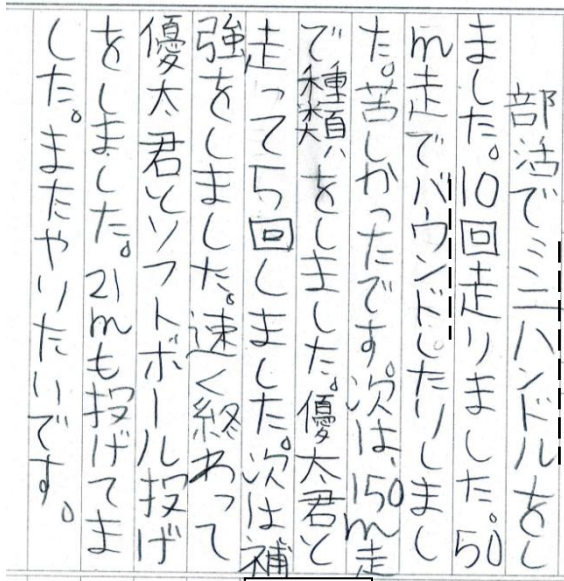 部活でミニハンドルをし
ました。10回走りました。50
m走でバウンドしたりしまし
た。苦しかったです。次は、150m走
で種類をしました。優太君と
走って5回しました。次は補
強をしました。速く終わって
優太君とソフトボール投げ
をしました。21mも投げてま
した。またやりたいです。